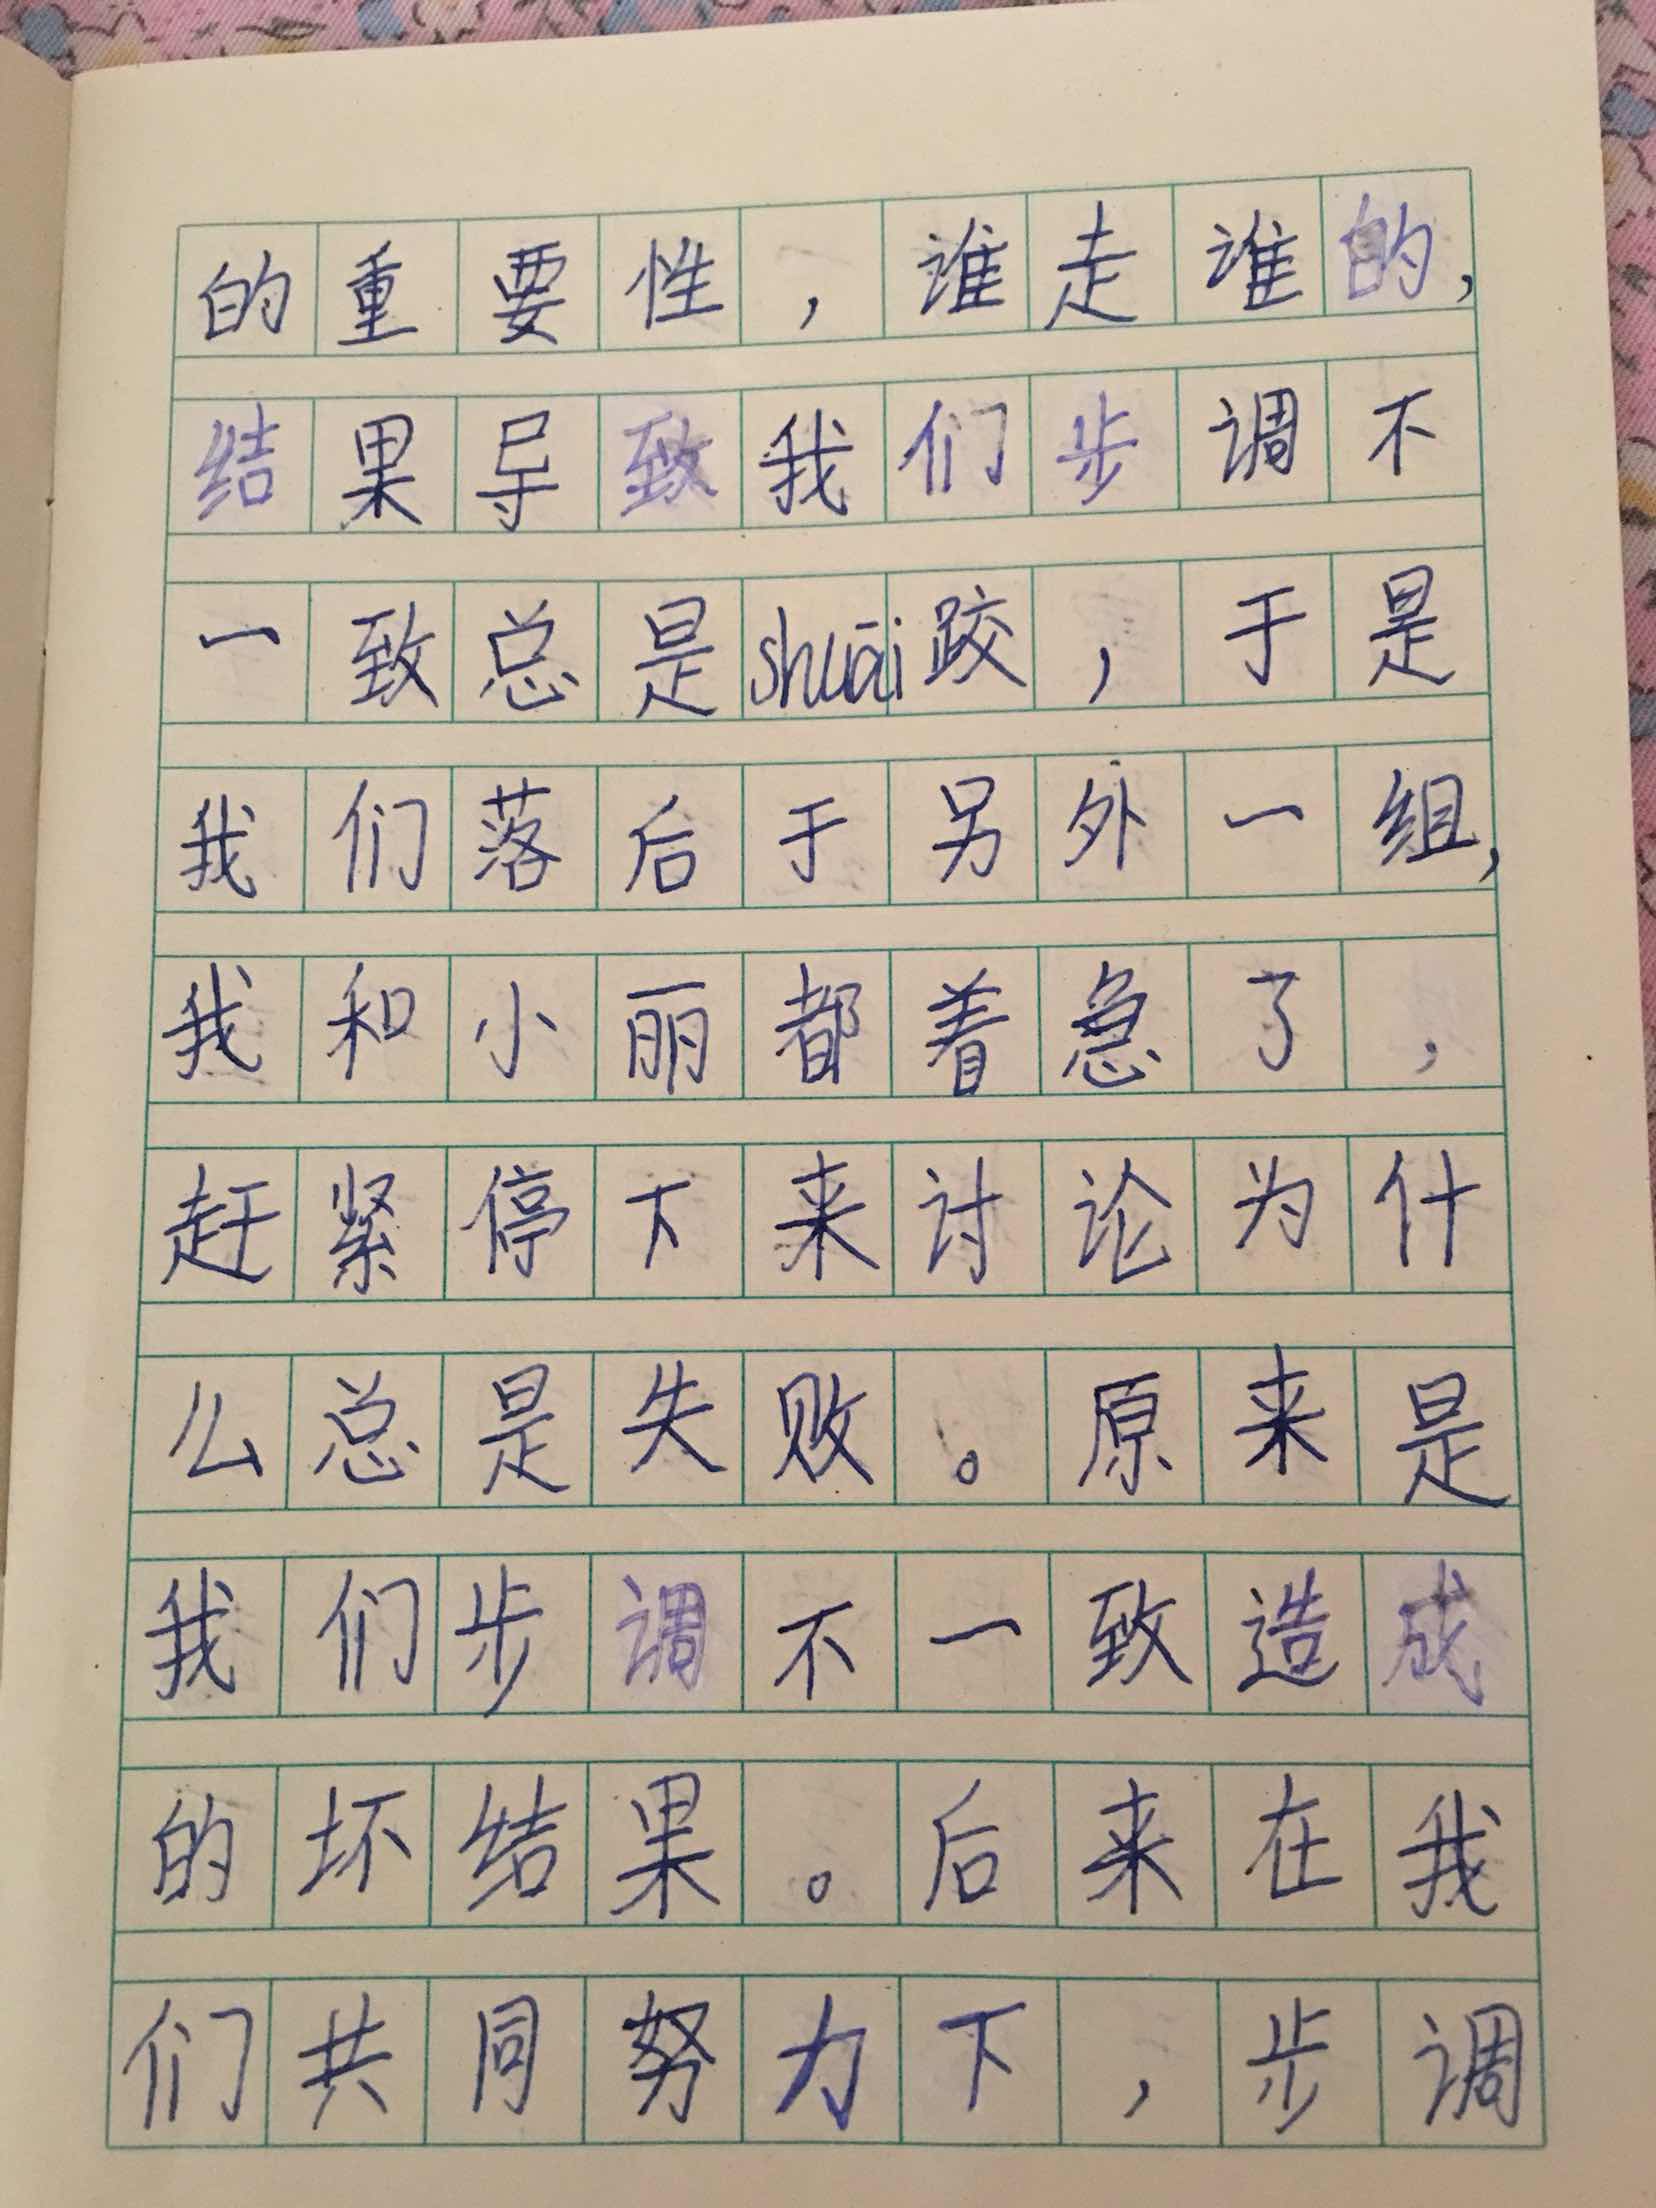 的重要性，谁走谁的，
结果导致我们步调不
一致总是shuāi跤，于是
我们落后于另外一组，
我和小丽都着急了，
赶紧停下来讨论为什
么总是失败。原来是
我们步调不一致造成
的坏结果。后来在我
们共同努力下，步调